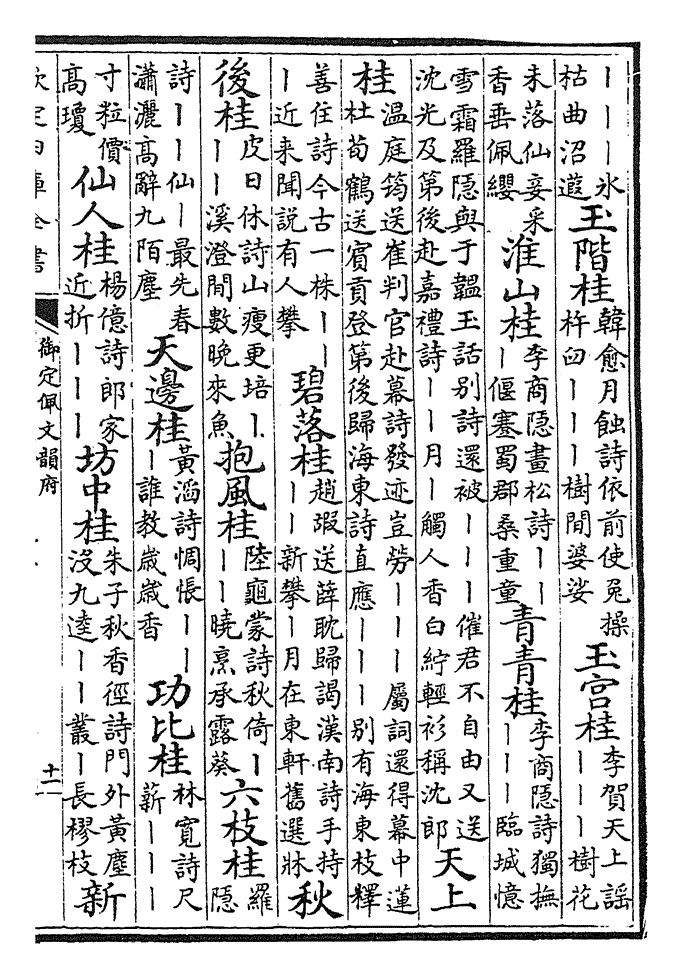 丨丨丨氷枯曲沼遐玉階桂韓愈月蝕詩依前使兔操杵臼丨丨丨樹間婆娑玉宫桂李賀天上謡丨丨丨樹花
未落仙妾采香垂佩纓淮山桂李商隱畫松詩丨丨丨偃蹇蜀郡桑重童青青桂李商隱詩獨撫丨丨丨臨城憶
雪霜羅隱與于韞玉話别詩還被丨丨丨催君不自由又送沈光及第後赴嘉禮詩丨丨月丨觸人香白紵輕衫稱沈郎天上
桂温庭筠送崔判官赴幕詩發迹豈勞丨丨丨屬詞還得幕中蓮杜荀鶴送賓貢登第後歸海東詩直應丨丨丨别有海東枝釋
善住詩今古一株丨丨丨近来聞説有人攀碧落桂趙嘏送薛耽歸謁漢南詩手持丨丨新攀丨月在東軒舊選牀秋
後桂皮日休詩山瘦更培丨丨丨溪澄間數晚來魚抱風桂陸龜蒙詩秋倚丨丨丨曉烹承露葵六枝桂羅隱
詩丨丨仙丨最先春瀟灑高辭九陌塵天邊桂黄滔詩惆悵丨丨丨誰教嵗嵗香功比桂林寛詩尺薪丨丨丨
寸粒價高瓊仙人桂楊億詩郎家近折丨丨丨坊中桂朱子秋香徑詩門外黄塵沒九逵丨丨叢丨長樛枝新
欽定四庫全書
御定佩文韻府
十一